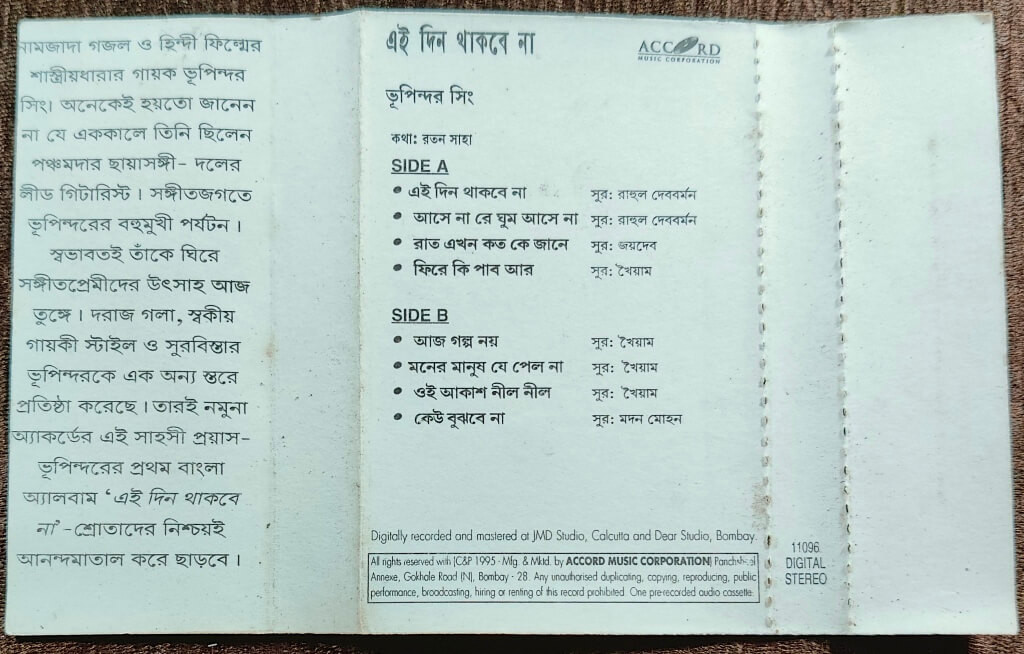 নামজাদা গজল ও হিন্দী ফিল্মের
শাস্ত্রীয়ধারার গায়ক ভূপিন্দর
সিং। অনেকেই হয়তো জানেন
না যে এককালে তিনি ছিলেন
পঞ্চমদার ছায়াসঙ্গী- দলের
লীড গিটারিস্ট। সঙ্গীতজগতে
ভূপিন্দরের বহুমুখী পর্যটন।
স্বভাবতই তাঁকে ঘিরে
সঙ্গীতপ্রেমীদের উৎসাহ আজ
তুঙ্গে। দরাজ গলা, স্বকীয়
গায়কী স্টাইল ও সুরবিস্তার
ভূপিন্দরকে এক অন্য স্তরে
প্রতিষ্ঠা করেছে। তারই নমুনা
অ্যাকর্ডের এই সাহসী প্রয়াস-
ভূপিন্দরের প্রথম বাংলা
অ্যালবাম ‘এই দিন থাকবে
না’ -শ্রোতাদের নিশ্চয়ই
আনন্দমাতাল করে ছাড়বে।
এই দিন থাকবে না
ACCORD
MUSIC CORPORATION
ভূপিন্দর সিং
কথা: রতন সাহা
SIDE A
• এই দিন থাকবে না সুর: রাহুল দেববর্মন
• আসে না রে ঘুম আসে না সুর: রাহুল দেববর্মন
• রাত এখন কত কে জানে সুর: জয়দেব
• ফিরে কি পাব আর সুর: খৈয়াম
SIDE B
• আজ গল্প নয় সুর: খৈয়াম
• মনের মানুষ যে পেল না সুর: খৈয়াম
• ওই আকাশ নীল নীল সুর: খৈয়াম
• কেউ বুঝবে না সুর: মদন মোহন
Digitally recorded and mastered at JMD Studio, Calcutta and Dear Studio, Bombay.
All rights reserved with (C&P 1995 - Mfg. & Mktd. by ACCORD MUSIC CORPORATION)
Annexe, Gokhale Road (N), Bombay - 28. Any unauthorised duplicating, copying, reproducing, public
performance, broadcasting, hiring or renting of this record prohibited. One pre-recorded audio cassette.
11096
DIGITAL
STEREO